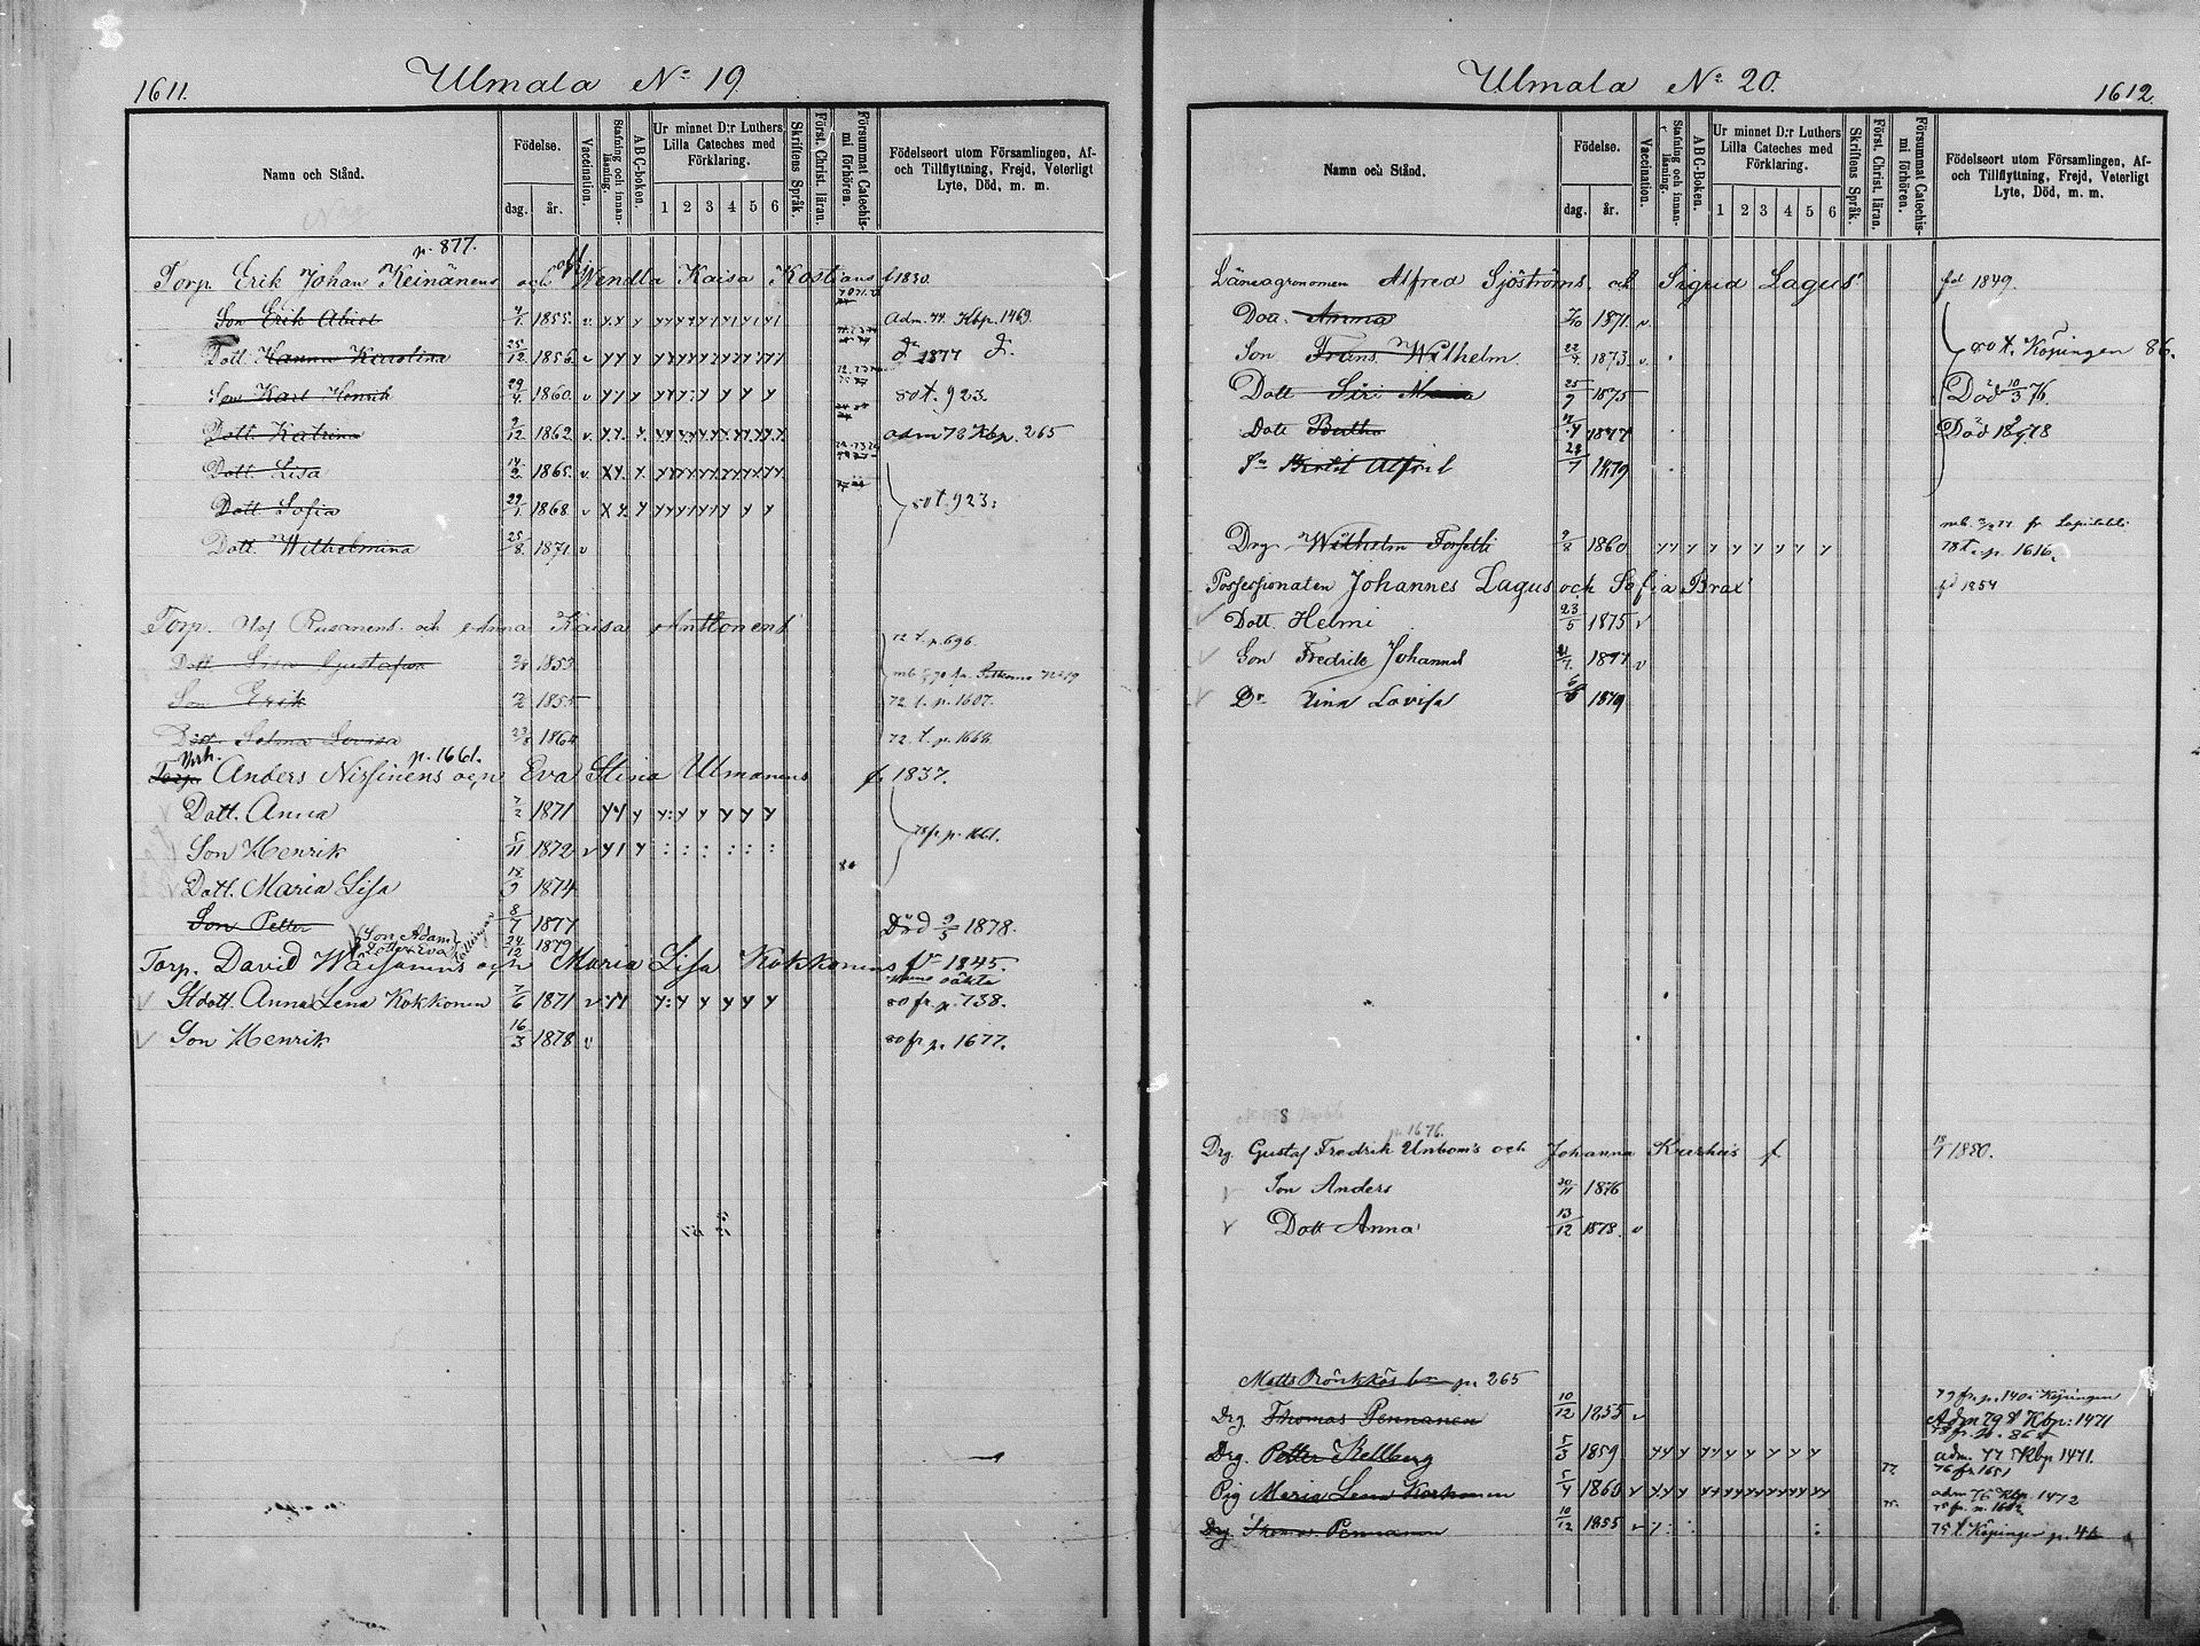 1611.
Ulmala No 19
Namn och Stånd.
Födelse.
dag.
år.
Vaccination.
Stafning och innan-
läsning.
ABC-boken.
Ur minnet D:r Luthers
Lilla Cateches med
Förklaring.
1 2 3 4 5 6
Skriftens Språk.
Först. Christ. läran.
Försummat Catechis-
mi förhören.
Födelseort utom Församlingen, Af-
och Tillflyttning, Frejd, Veterligt
Lyte, Död, m. m.
p. 877.
Torp. Erik Johan Keinänens och Wendla Kaisa f. 1830.
Son Erik Abiel 1855. v. Adm. 77. Kbp. 1469.
Dott. Hanna Karolina 25/12 1856 v 1877
Son Karl Henrik 29/4 1860 v 80 t. 923.
Dott. Katrina 9/12 1862 v. adm 78 Kbp. 265
Dott. Lisa 14/2 1865. v.
Dott. Sofia 29/1 1868 v 80 t. 923.
Dott. Wilhelmina 25/8 1871 v
Torp. Rusanens och Anna Kaisa Anttonens 72 t. p. 696.
Dott Lisa Gustafva 1853
Son Erik 1855 72 t. p. 1607.
Dott. Selma Lovisa 1864 72. t. p. 1668
p. 1661.
Torp. Anders Nissinens och Eva Stina Ulmanens f. 1837.
Dott. Anna 7/2 1871
Son Henrik 5/11 1872 v 78 fr. p. 1661.
Dott. Maria Lisa 18/9 1874
Son Petter 8/7 1877 Död 9/5 1878.
Son Adam
Dotter Eva
Tvillingar
24/12 1879
Torp. David Wäisänens och Maria Lisa Kokkonens f. 1845.
oäkta
Stdott. Anna Lena Kokkonen 7/6 1871 v 80 fr. p. 738.
Son Henrik 16/3 1878 v 80 fr p. 1677.
1612.
Ulmala No 20.
Namn och Stånd.
Födelse.
dag.
år.
Vaccination.
Stafning och innan-
läsning.
ABC-Boken.
Ur minnet D:r Luthers
Lilla Cateches med
Förklaring.
1 2 3 4 5 6
Skriftens Språk.
Först. Christ. läran.
Försummat Catechis-
mi förhören.
Födelseort utom Församlingen, Af-
och Tillflyttning, Frejd, Veterligt
Lyte, Död, m. m.
Länsagronomen Alfred Sjöströms och Sigrid Lagus' fd 1849.
Dott. Anna 1871. v.
Son Frans Wilhelm 22/7 1873. v. 80 t. Köpingen 86.
Dott Siri Maria 25/9 1875 Död 10/3 76.
Dott Bertha 1877 Död 78
1879
Drg Wilhelm Forsell 9/8 1860 78 t. p. 1616.
Possessionaten Johannes Lagus och Sofia Brax' fd 1854
Dott. Helmi 23/5 1875 v
Son Fredrik Johannes 1877 v
Dr Aina Lovisa 1879
p. 1676.
Drg. Gustaf Fredrik Unbom's och Johanna Karhu's f 1850.
Son Anders 30/11 1876
Dott Anna 13/12 1878. v
Matts Rönkkös p. 265
79 fr. p. 140 Köpingen
Drg. Thomas Pennanen 10/12 1855 v Adm 79 Kbp: 1471
Drg. Petter Kellberg 5/3 1859 adm. 77 Kbp 1471.
76 fr 1651
Pig Maria Lena Korhonen 5/4 1860 v adm 76 Kbp. 1472
Drg Thomas Pennanen 10/12 1855 v 75 t. Köpingen p.